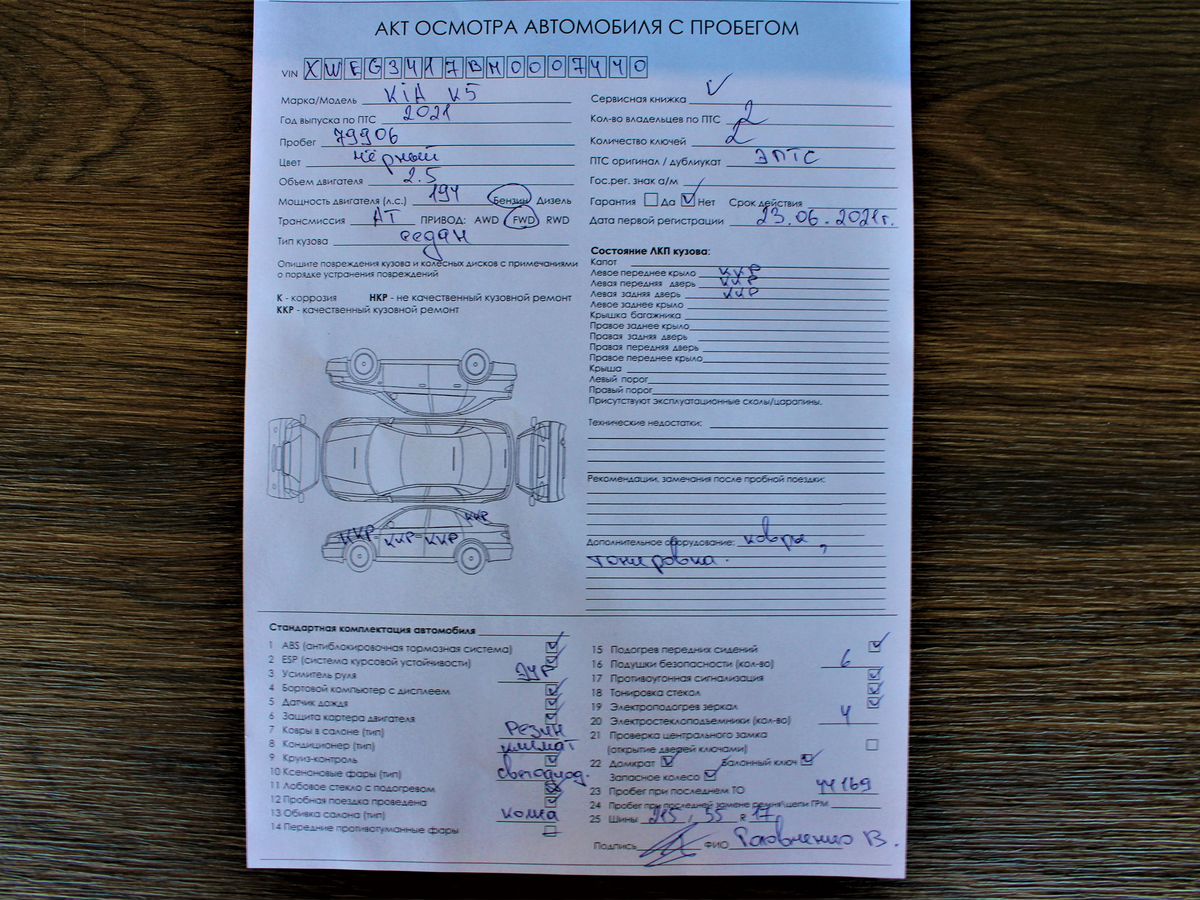 АКТ ОСМОТРА АВТОМОБИЛЯ С ПРОБЕГОМ
VIN XWEG3417BM0007440
Марка/Модель KIA K5
Год выпуска по ПТС 2021
Пробег 79906
Цвет чёрный
Объем двигателя 2.5
Мощность двигателя (л.с.) 194 Бензин Дизель
Трансмиссия АТ ПРИВОД: AWD FWD RWD
Тип кузова седан
Опишите повреждения кузова и колесных дисков с примечаниями
о порядке устранения повреждений
К - коррозия НКР - не качественный кузовной ремонт
ККР - качественный кузовной ремонт
ККР
ККР ККР ККР
Сервисная книжка
Кол-во владельцев по ПТС 2
Количество ключей 2
ПТС оригинал / дубликат ЭПТС
Гос.рег. знак а/м
Гарантия Да Нет Срок действия
Дата первой регистрации 23.06.2021г.
Состояние ЛКП кузова:
Капот
Левое переднее крыло ККР
Левая передняя дверь ККР
Левая задняя дверь ККР
Левое заднее крыло
Крышка багажника
Правое заднее крыло
Правая задняя дверь
Правая передняя дверь
Правое переднее крыло
Крыша
Левый порог
Правый порог
Присутствуют эксплуатационные сколы/царапины.
Технические недостатки:
Рекомендации, замечания после пробной поездки:
Дополнительное оборудование: ковры,
тонировка.
Стандартная комплектация автомобиля
1 ABS (антиблокировочная тормозная система)
2 ESP (система курсовой устойчивости)
3 Усилитель руля ЭУР
4 Бортовой компьютер с дисплеем
5 Датчик дождя
6 Защита картера двигателя
7 Ковры в салоне (тип) Резин
8 Кондиционер (тип) климат
9 Круиз-контроль
10 Ксеноновые фары (тип) светодиод.
11 Лобовое стекло с подогревом
12 Пробная поездка проведена
13 Обивка салона (тип) кожа
14 Передние противотуманные фары
15 Подогрев передних сидений
16 Подушки безопасности (кол-во) 6
17 Противоугонная сигнализация
18 Тонировка стекол
19 Электроподогрев зеркал
20 Электростеклоподъемники (кол-во) 4
21 Проверка центрального замка
(открытие дверей ключами)
22 Домкрат Балонный ключ
Запасное колесо
23 Пробег при последнем ТО 77169
24 Пробег при последней замене ремня\цепи ГРМ
25 Шины 215 / 55 R 17
Подпись ФИО В.